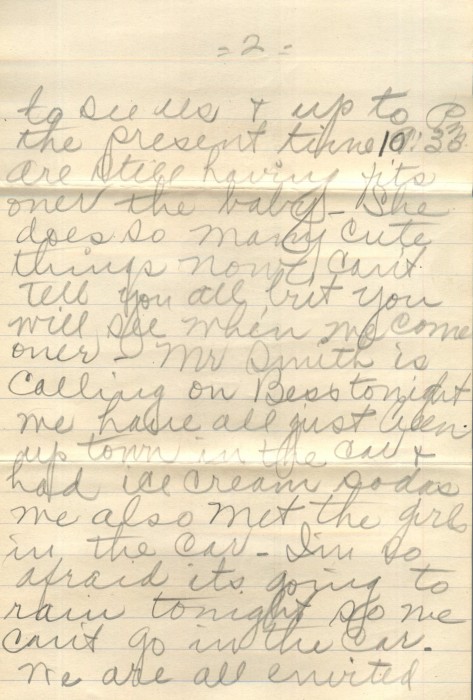 = 2 =
to see us & up to
the present time 10:30 P.M.
are still having fits
over the baby - She
does so many cute
things now I can't
tell you all but you
will see when we come
over - Mr Smith is
calling on Bess tonight
we have all just been
up town in the car &
had ice cream sodas
we also met the girls
in the car - I'm so
afraid its going to
rain tonight so we
can't go in the car.
We are all envited